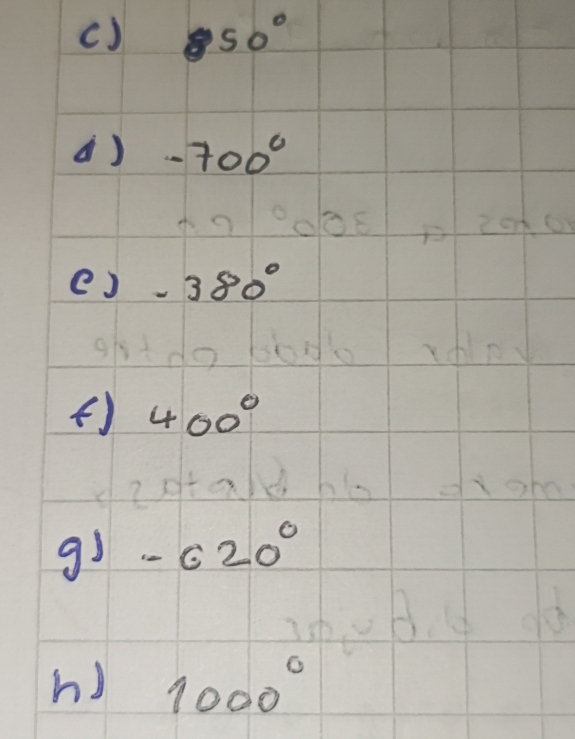 c) 850°
d) -700°
e) -380°
f) 400°
g) -620°
h) 1000°